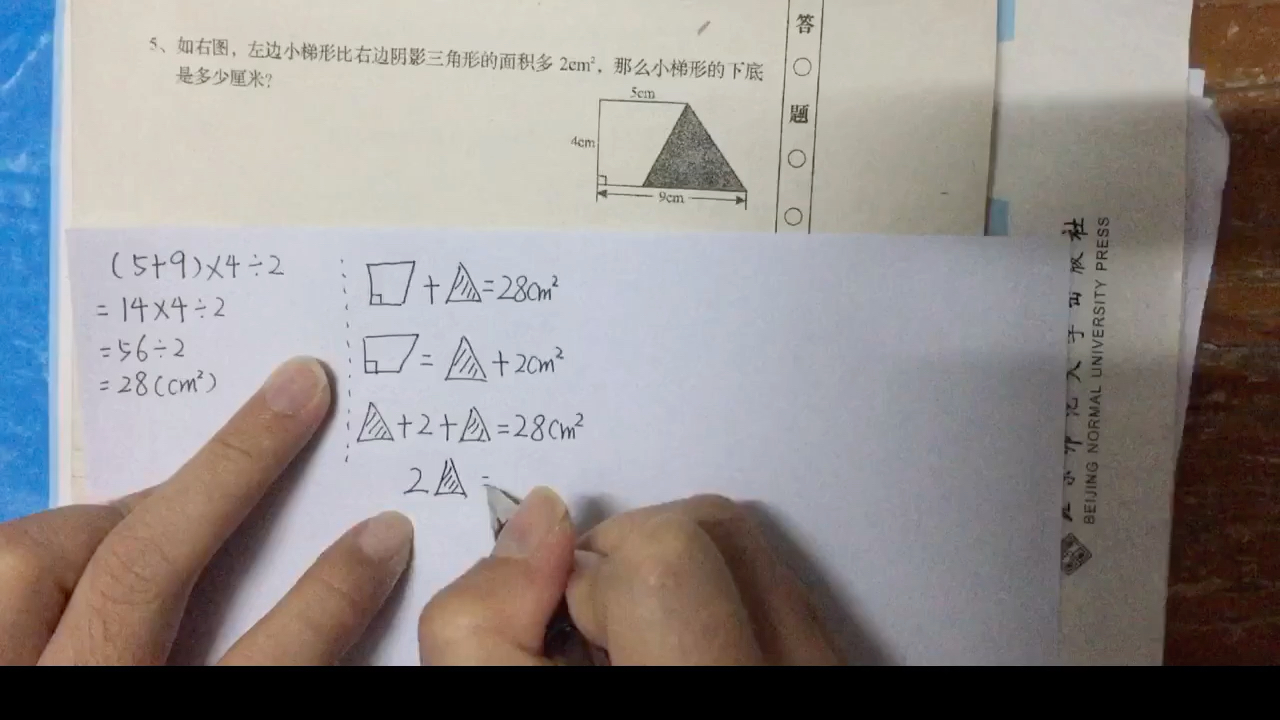 5、如右图，左边小梯形比右边阴影三角形的面积多 2cm²，那么小梯形的下底
是多少厘米?
5cm
4cm
9cm
答
题
(5+9)×4÷2
=14×4÷2
=56÷2
=28(cm²)
+ =28cm²
= +2cm²
+2+ =28cm²
2 =
社
版
出
学
大
范
师
京
北
BEIJING NORMAL UNIVERSITY PRESS